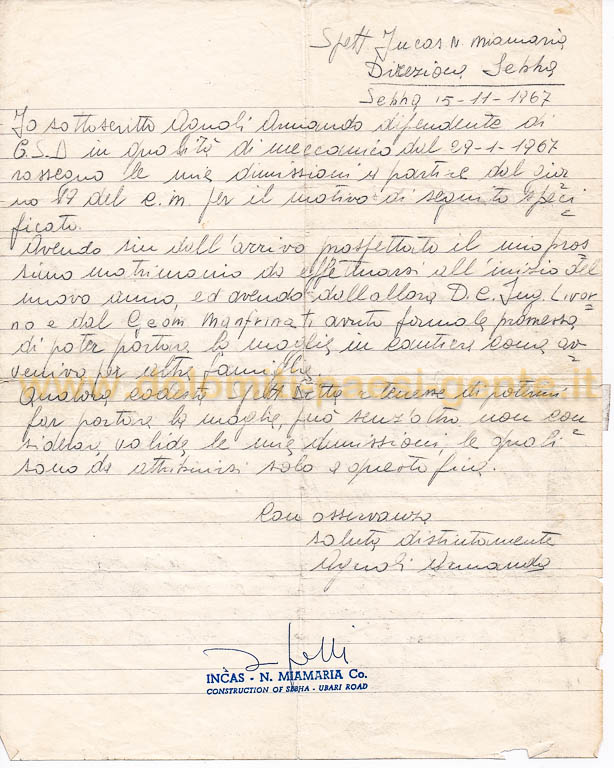 Spett Incas N. Miamaria
Direzione Sebha
Sebha 15-11-1967
Io sottoscritto Agnoli Armando dipendente di
C.S.D in qualità di meccanico dal 29-1-1967
rassegno le mie dimissioni a partire dal gior
no 17 del c.m. per il motivo di seguito speci
ficato.
Avendo sin dall'arrivo prospettato il mio pros
simo matrimonio da effettuarsi all'inizio del
nuovo anno, ed avendo dall allora D.C. Ing. Livor
no e dal Geom Manfrinati avuto formale promessa
di poter portare la moglie in cantiere come av
veniva per altre famiglie.
Qualora codesta Spett Ditta ritenesse di potermi
far portare la moglie, può senz'altro non con
siderar valide le mie dimissioni, le quali
sono da attribuirsi solo a questo fine.
Con osservanza
saluta distintamente
Agnoli Armando
www.dolomitipaesigente.it
INCAS - N. MIAMARIA Co.
CONSTRUCTION OF SEBHA - UBARI ROAD